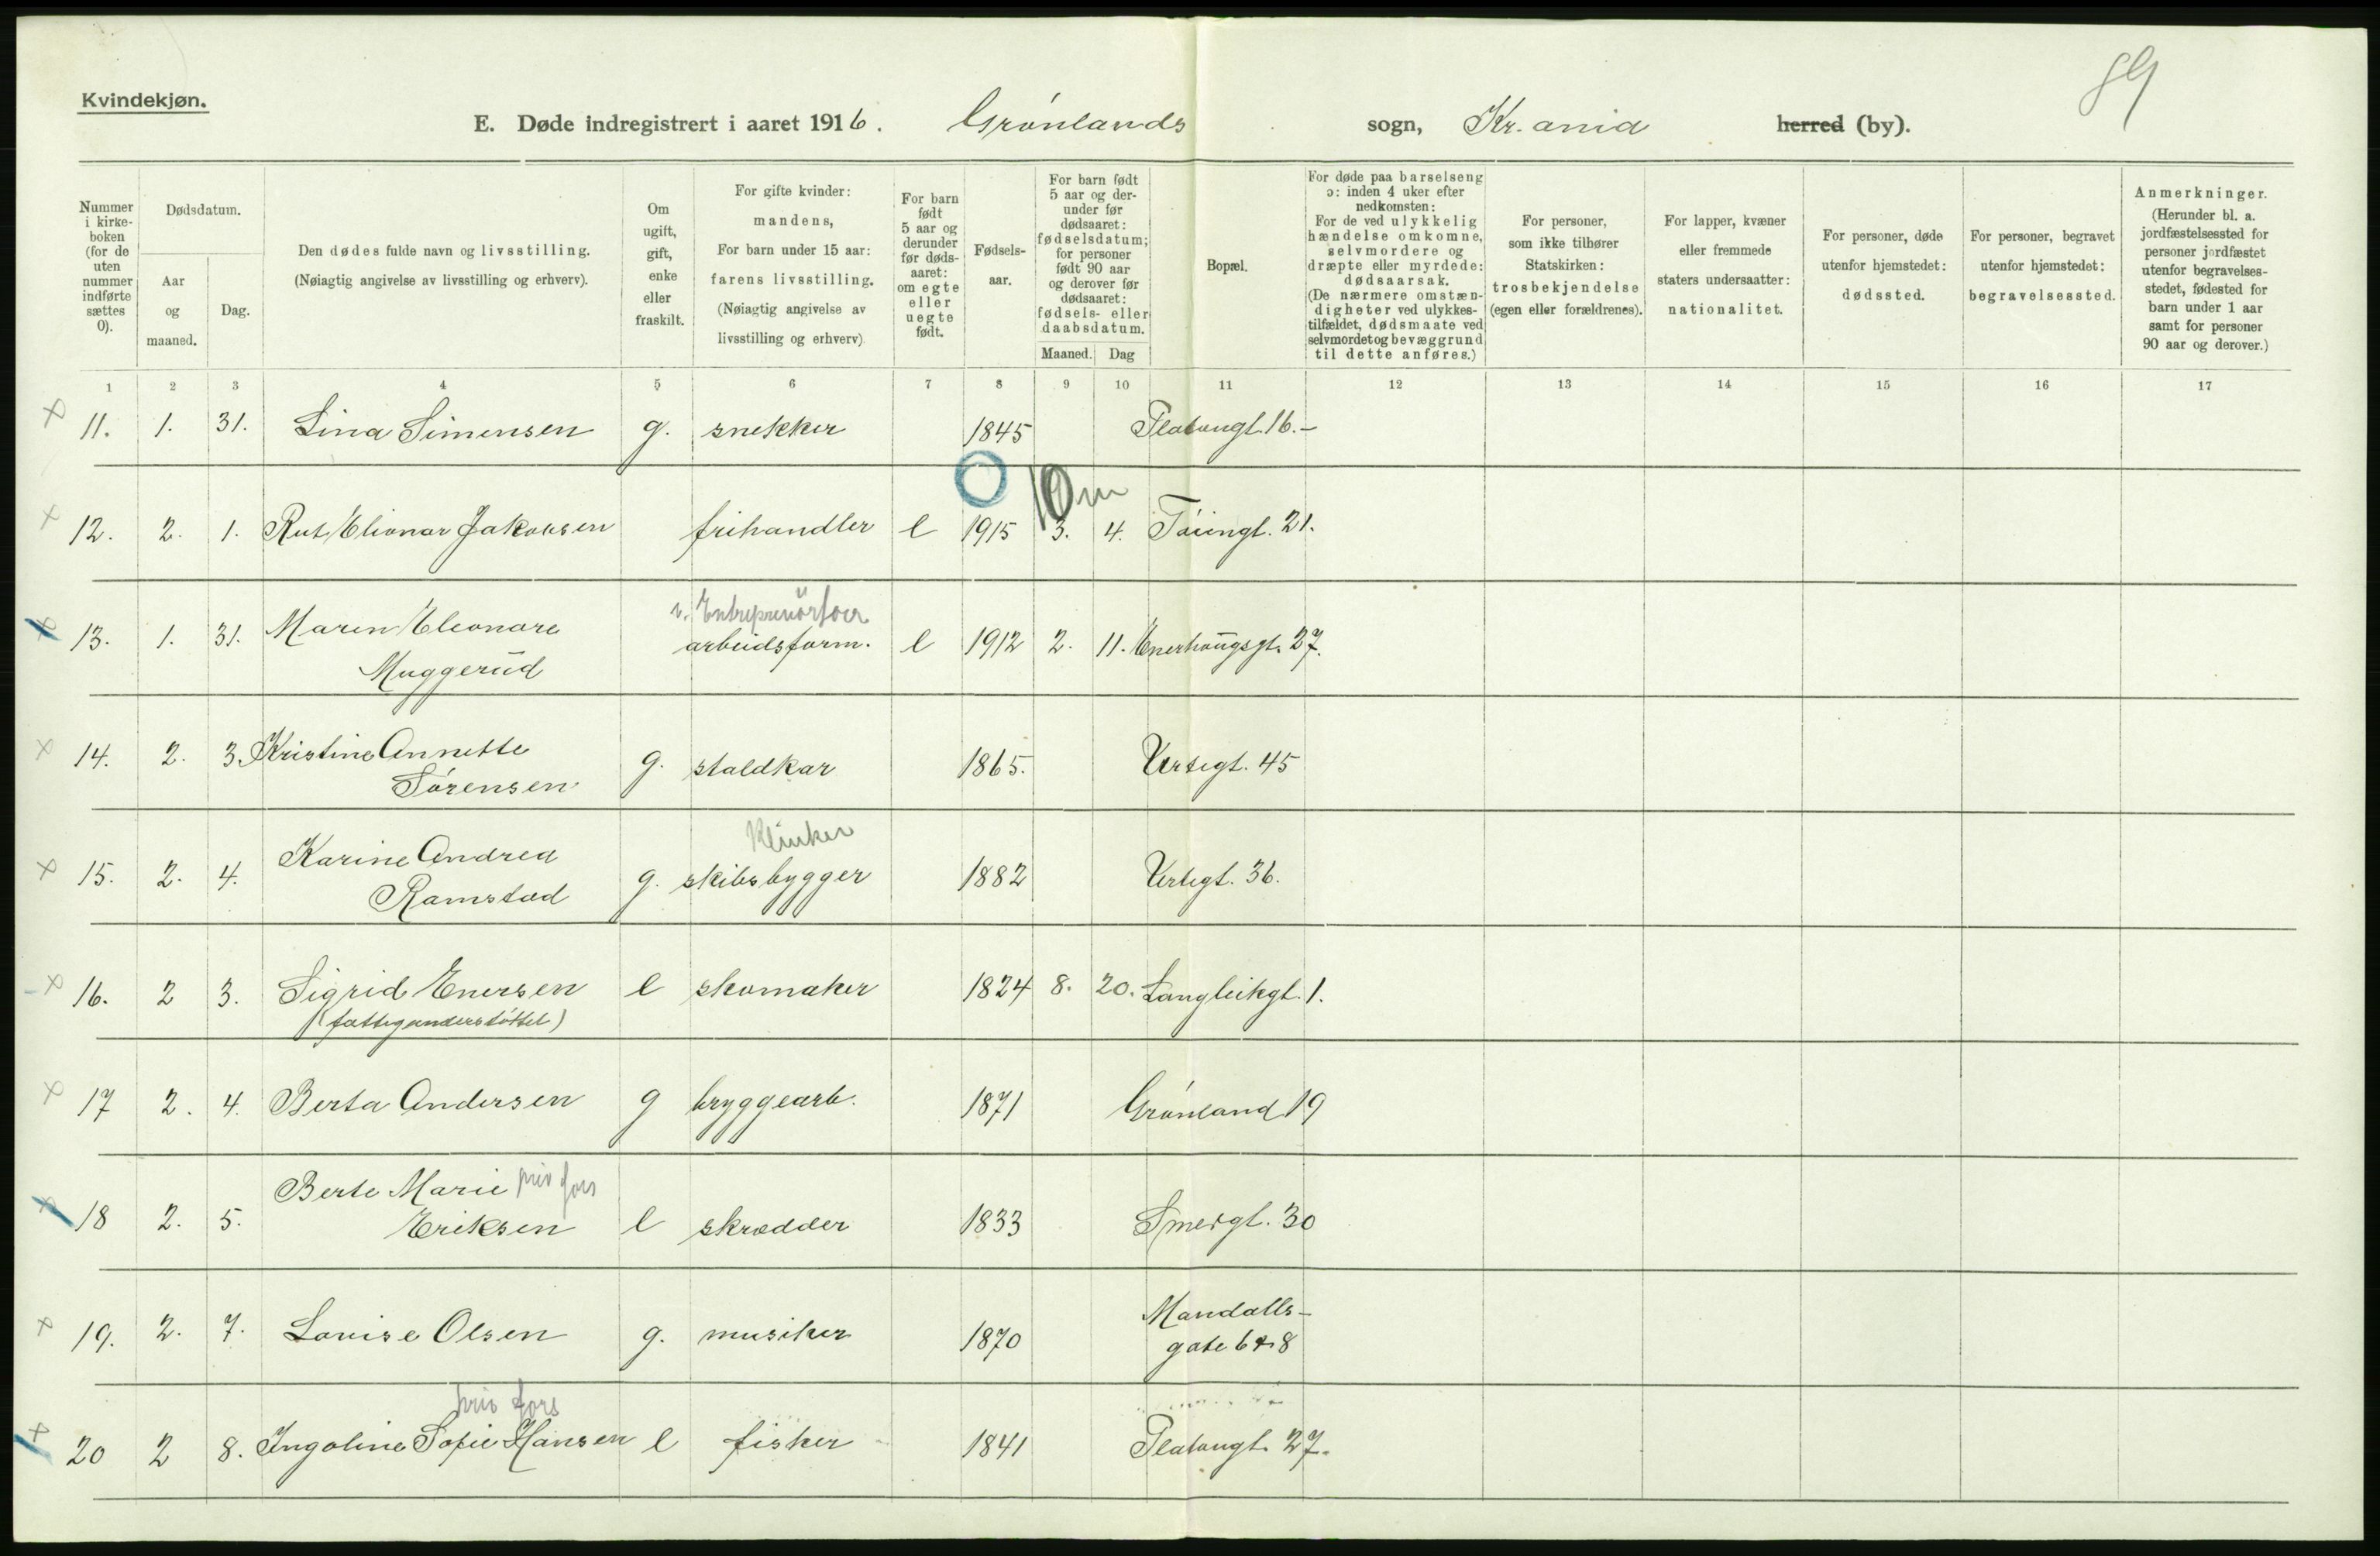 89
Kvindekjøn.
E. Døde indregistrert i aaret 1916. Grønlands sogn, Kr.ania herred (by).
Nummer i kirke- boken (for de uten nummer indførte sættes 0).
Dødsdatum.
Aar og maaned.
Dag.
Den dødes fulde navn og livsstilling.
(Nøiagtig angivelse av livsstilling og erhverv).
Om ugift, gift, enke eller fraskilt.
For gifte kvinder: mandens,
For barn under 15 aar: farens livsstilling.
(Nøiagtig angivelse av livsstilling og erhverv)
For barn født 5 aar og derunder før døds- aaret: om egte eller uegte født.
Fødsels- aar.
For barn født 5 aar og der- under før dødsaaret: fødselsdatum; for personer født 90 aar og derover før dødsaaret: fødsels- eller daabsdatum.
Maaned. Dag
Bopæl.
For døde paa barselseng ɔ: inden 4 uker efter nedkomsten:
For de ved ulykkelig hændelse omkomne, selvmordere og dræpte eller myrdede: dødsaarsak.
(De nærmere omstæn- digheter ved ulykkes- tilfældet, dødsmaate ved selvmordet og bevæggrund til dette anføres.)
For personer, som ikke tilhører Statskirken: trosbekjendelse (egen eller forældrenes).
For lapper, kvæner eller fremmede staters undersaatter: nationalitet.
For personer, døde utenfor hjemstedet: dødssted.
For personer, begravet utenfor hjemstedet: begravelsessted.
Anmerkninger.
(Herunder bl. a. jordfæstelsessted for personer jordfæstet utenfor begravelses- stedet, fødested for barn under 1 aar samt for personer 90 aar og derover.)
1 2 3 4 5 6 7 8 9 10 11 12 13 14 15 16 17
11. 1. 31. Lina Simensen g. snekker 1845 Platougt. 16.-
10 m
12. 2. 1. Rut Elionor Jakobsen frihandler e 1915 3. 4. Tøiengt. 21.
Entreprenörforr
13. 1. 31. Maren Eleonore arbeidsform. e 1912 2. 11. Enerhaugsgt. 27.
Muggerud
14. 2. 3. Kristine Annette g. staldkar 1865. Urtegt. 45
Sørensen
Klinker
15. 2. 4. Karine Andrea g. skibsbygger 1882 Urtegt. 36.
Ramstad
16. 2 3. Sigrid Enersen e skomaker 1824 8. 20. Langleikgt. 1.
(fattigunderstøttet)
17 2. 4. Berta Andersen g bryggearb. 1871 Grønland 19
18 2. 5. Berte Marie priv fors e skrædder 1833 Smedgt. 30
Eriksen
19. 2. 7. Lovise Olsen g. musiker 1870 Mandalls-
gate 6 & 8
priv fors
20 2 8. Ingoline Sofie Hansen e fisker 1841 Platougt. 27.